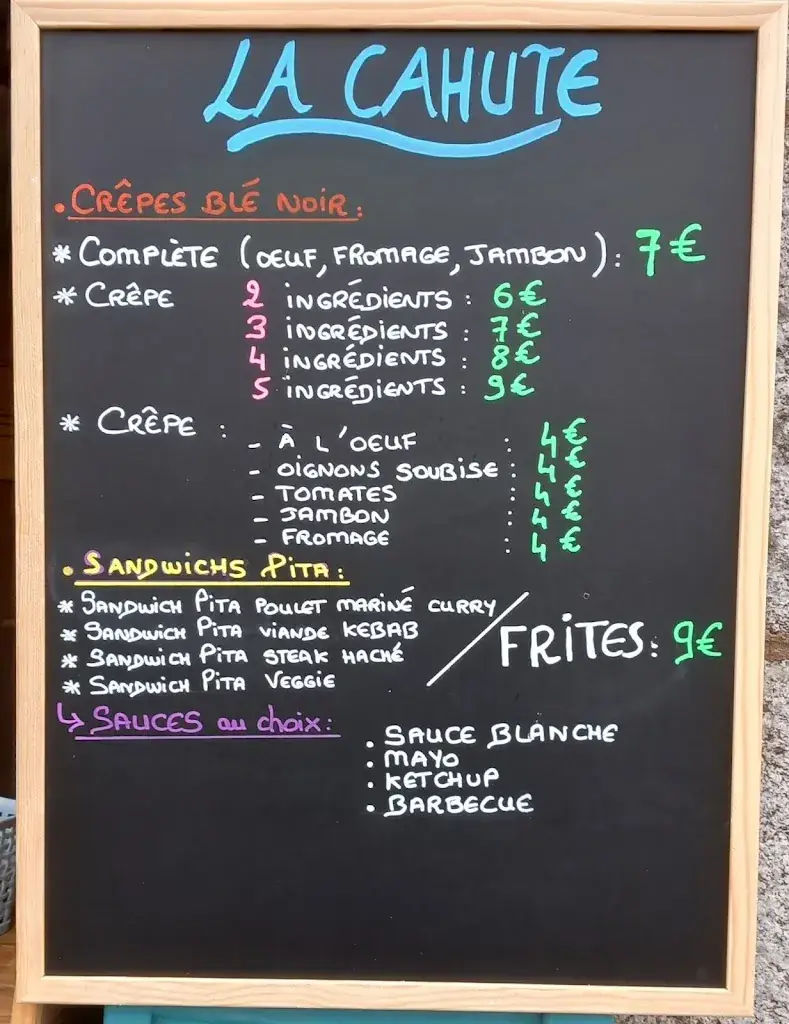 LA CAHUTE
• CRÊPES BLÉ NOIR :
* COMPLÈTE (OEUF, FROMAGE, JAMBON) : 7€
* CRÊPE 2 INGRÉDIENTS : 6€
3 INGRÉDIENTS : 7€
4 INGRÉDIENTS : 8€
5 INGRÉDIENTS : 9€
* CRÊPE : - À L'OEUF : 4€
- OIGNONS SOUBISE : 4€
- TOMATES : 4€
- JAMBON : 4€
- FROMAGE : 4€
• SANDWICHS PITA :
* SANDWICH PITA POULET MARINÉ CURRY
* SANDWICH PITA VIANDE KEBAB
* SANDWICH PITA STEAK HACHÉ
* SANDWICH PITA VEGGIE
/ FRITES : 9€
↳ SAUCES au choix :
• SAUCE BLANCHE
• MAYO
• KETCHUP
• BARBECUE